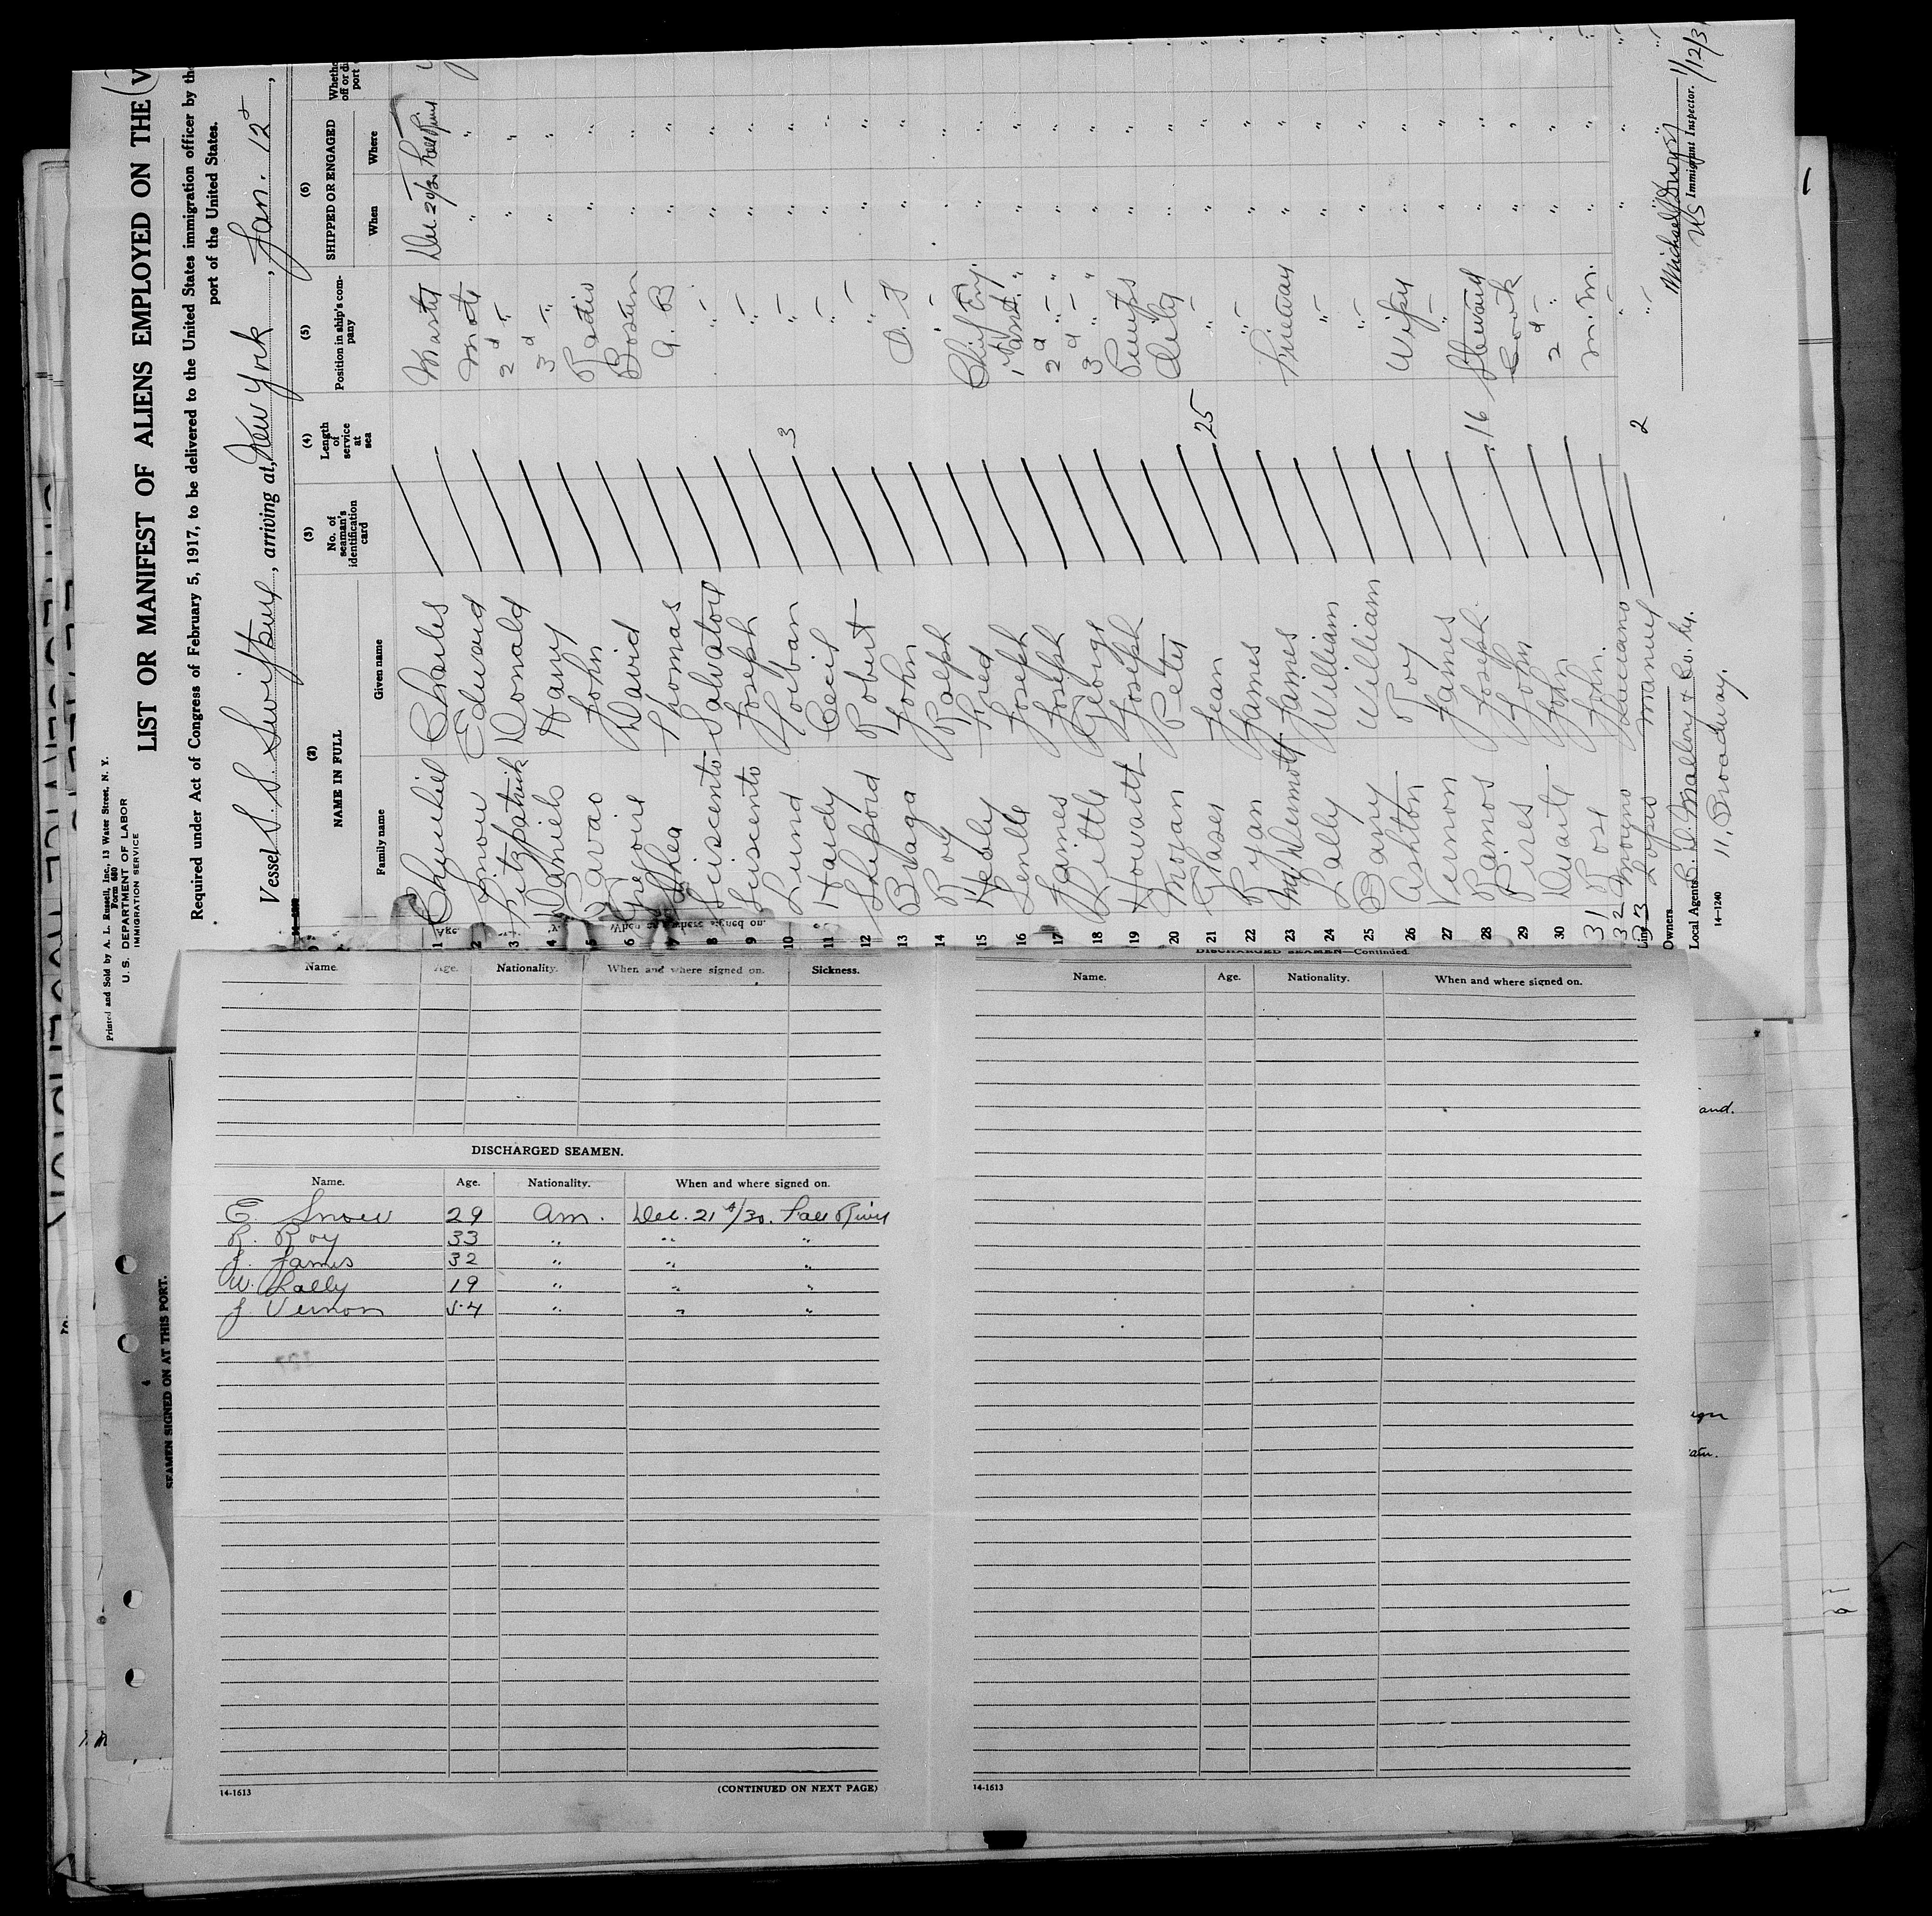 Printed and Sold by A. L. Russell, Inc., 13 Water Street, N. Y.
Form 680
U. S. DEPARTMENT OF LABOR
IMMIGRATION SERVICE
LIST OR MANIFEST OF ALIENS EMPLOYED ON THE
Required under Act of Congress of February 5, 1917, to be delivered to the United States immigration officer by the
port of the United States.
Vessel S. S. Swiftsure, arriving at, New York, Jan. 12
(2) (3) (4) (5) (6)
NAME IN FULL No. of seaman's identification card Length of service at sea Position in ship's company SHIPPED OR ENGAGED
Family name Given name When Where
1 Charles Master Dec 20/30 Fall River
2 Snow Edward Mate " "
3 Fitzpatrick Donald 2d " " "
4 Daniels Harry 3d " " "
5 Pavao John Radio " "
6 Gregoire David Bosun " "
7 Shea Thomas A. B " "
8 Salvatore " " "
9 Joseph " " "
10 Lund Torban 3 " " "
11 Hardy Cecil " " "
12 Shepard Robert " " "
13 Braga John O. S " "
14 Roy Ralph " " "
15 Healy Fred Chief Eng. " "
16 Joseph 1st Asst. " " "
17 James Joseph 2d " " " "
18 Little George 3d " " " "
19 Howarth Joseph Pumps " "
20 Morgan Peter Oiler " "
21 Glaser Jean 25 " " "
22 Ryan James " " "
23 McDermott James Fireman " "
24 Lally William " " "
25 Barry William " " "
26 Ashton Roy Wiper " "
27 Vernon James " " "
28 Ramos Joseph 16 Steward " "
29 Pires John Cook " "
30 Duarte John 2d " " "
31 Rose John. M. M. " "
32 " " "
33 Lopes Manuel 2 " " "
Line
Owners
Local Agents C. D. Mallory & Co. Ny.
11, Broadway.
14-1240
Michael Dwyer
US Immigrant Inspector. 1/12/3
Name. Age. Nationality. When and where signed on. Sickness.
DISCHARGED SEAMEN.
Name. Age. Nationality. When and where signed on.
E. Snow 29 Am. Dec. 21st/30. Fall River
R. Roy 33 " " "
J. James 32 " " "
W. Lally 19 " " "
J. Vernon 54 " " "
14-1613 (CONTINUED ON NEXT PAGE)
DISCHARGED SEAMEN—Continued.
Name. Age. Nationality. When and where signed on.
14-1613
4
SEAMEN SIGNED ON AT THIS PORT.
and.